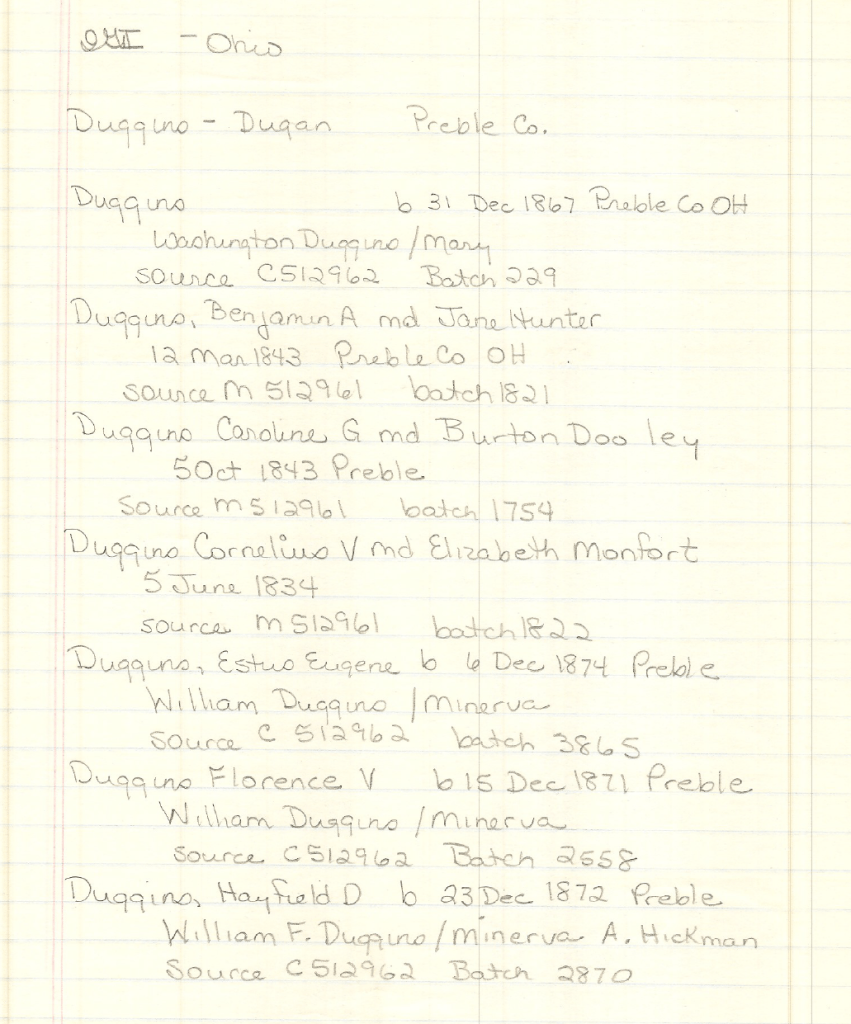 IGI - Ohio
Duggins - Dugan Preble Co.
Duggins b 31 Dec 1867 Preble Co OH
Washington Duggins / Mary
source C512962 Batch 229
Duggins, Benjamin A md Jane Hunter
12 Mar 1843 Preble Co OH
source M 512961 batch 1821
Duggins Caroline G md Burton Dooley
5 Oct 1843 Preble
source M512961 batch 1754
Duggins Cornelius V md Elizabeth Monfort
5 June 1834
source M512961 batch 1822
Duggins, Estus Eugene b 6 Dec 1874 Preble
William Duggins / Minerva
source C 512962 batch 3865
Duggins Florence V b 15 Dec 1871 Preble
William Duggins / Minerva
source C512962 Batch 2558
Duggins, Hayfield D b 23 Dec 1872 Preble
William F. Duggins / Minerva A. Hickman
Source C512962 Batch 2870